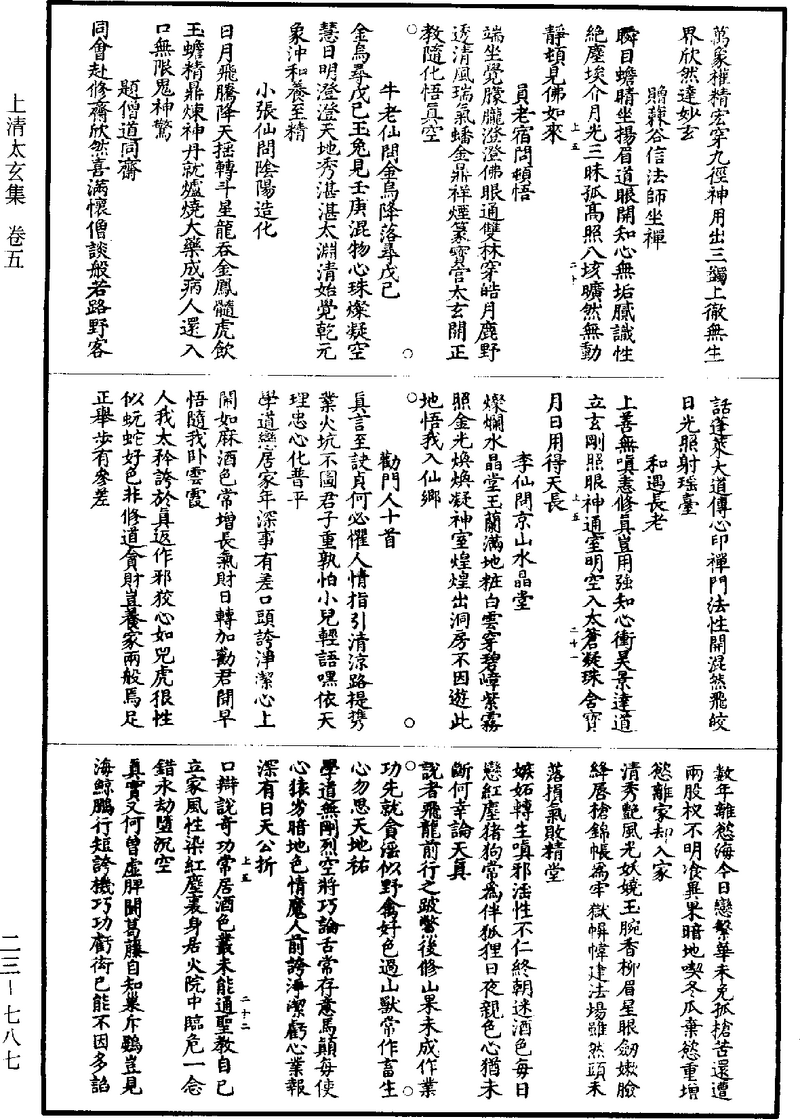 上清太玄集 卷五
二三—七八七
萬象權精宏穿九徑神用出三蠲上徹無生
界欣然達妙玄
贈蘇谷信法師坐禪
瞬目蟾睛坐揚眉道眼開知心無垢膩識性
絶塵埃介月光三昧孤高照八垓曠然無動
靜頓見佛如來
上五
二十
員老宿問頓悟
端坐覺朦朧澄澄佛眼通雙林穿皓月鹿野
透清風瑞氣蟠金鼎祥煙篆寶宫太玄開正
教隨化悟真空
牛老仙問金烏降落尋戊己
金烏尋戊己玉兔見壬庚混物心珠燦凝空
慧日明澄澄天地秀湛湛太淵清始覺乾元
象沖和養至精
小張仙問陰陽造化
日月飛騰降天摇轉斗星龍吞金鳳髓虎飲
玉蟾精鼎煉神丹就爐燒大藥成病人還入
口無限鬼神驚
題僧道同齋
同會赴修齋欣然喜滿懷僧談般若路野客
話蓬萊大道傳心印禪門法性開混然飛皎
日光照射瑶臺
和遇長老
上善無嗔恚修真豈用強知心衝昊景達道
立玄剛照眼神通室明空入太蒼凝珠含寶
月日用得天長
上五
二十一
李仙問京山水晶堂
燦爛水晶堂玉蘭滿地粧白雲穿碧嶂紫霧
照金光焕焕凝神室煌煌出洞房不因遊此
地悟我入仙鄉
勸門人十首
真言至訣貞何必懼人情指引清涼路提携
業火坑不圖君子重孰怕小兒輕語嘿依天
理忠心化普平
學道戀居家年深事有差口頭誇淨潔心上
鬧如麻酒色常增長氣財日轉加勸君開早
悟隨我卧雲霞
人我太矜誇於真返作邪狡心如兕虎狠性
似蚖蛇好色非修道貪財豈養家兩般馬足
正舉步有參差
數年離慾海今日戀繁華未免孤搶苦還遭
兩股杈不明飡異果暗地喫冬瓜棄慾重增
慾離家却入家
清秀艷風光妖嬈玉腕香柳眉星眼劒嫩臉
絳唇槍錦帳為牢獄幃幃建法場雖然頭未
落損氣敗精堂
嫉妬轉生嗔邪淫性不仁終朝迷酒色每日
戀紅塵猪狗常為伴狐狸日夜親色心猶未
斷何幸論天真
說者飛龍前行之跛鱉後修山果未成作業
功先就貪婬似野禽好色過山獸常作畜生
心勿思天地祐
學道無剛烈空將巧論舌常存意馬顛每使
心猿劣暗地色情魔人前誇淨潔虧心業報
深有日天公折
口辯說奇功常居酒色叢未能通聖教自己
立家風性染紅塵裏身居火院中臨危一念
錯永劫墮沉空
上五
二十二
真實又何曾虚脾鬭葛藤自知巢斥鷃豈見
海鯨鵬行短誇機巧功虧衒己能不因多諂